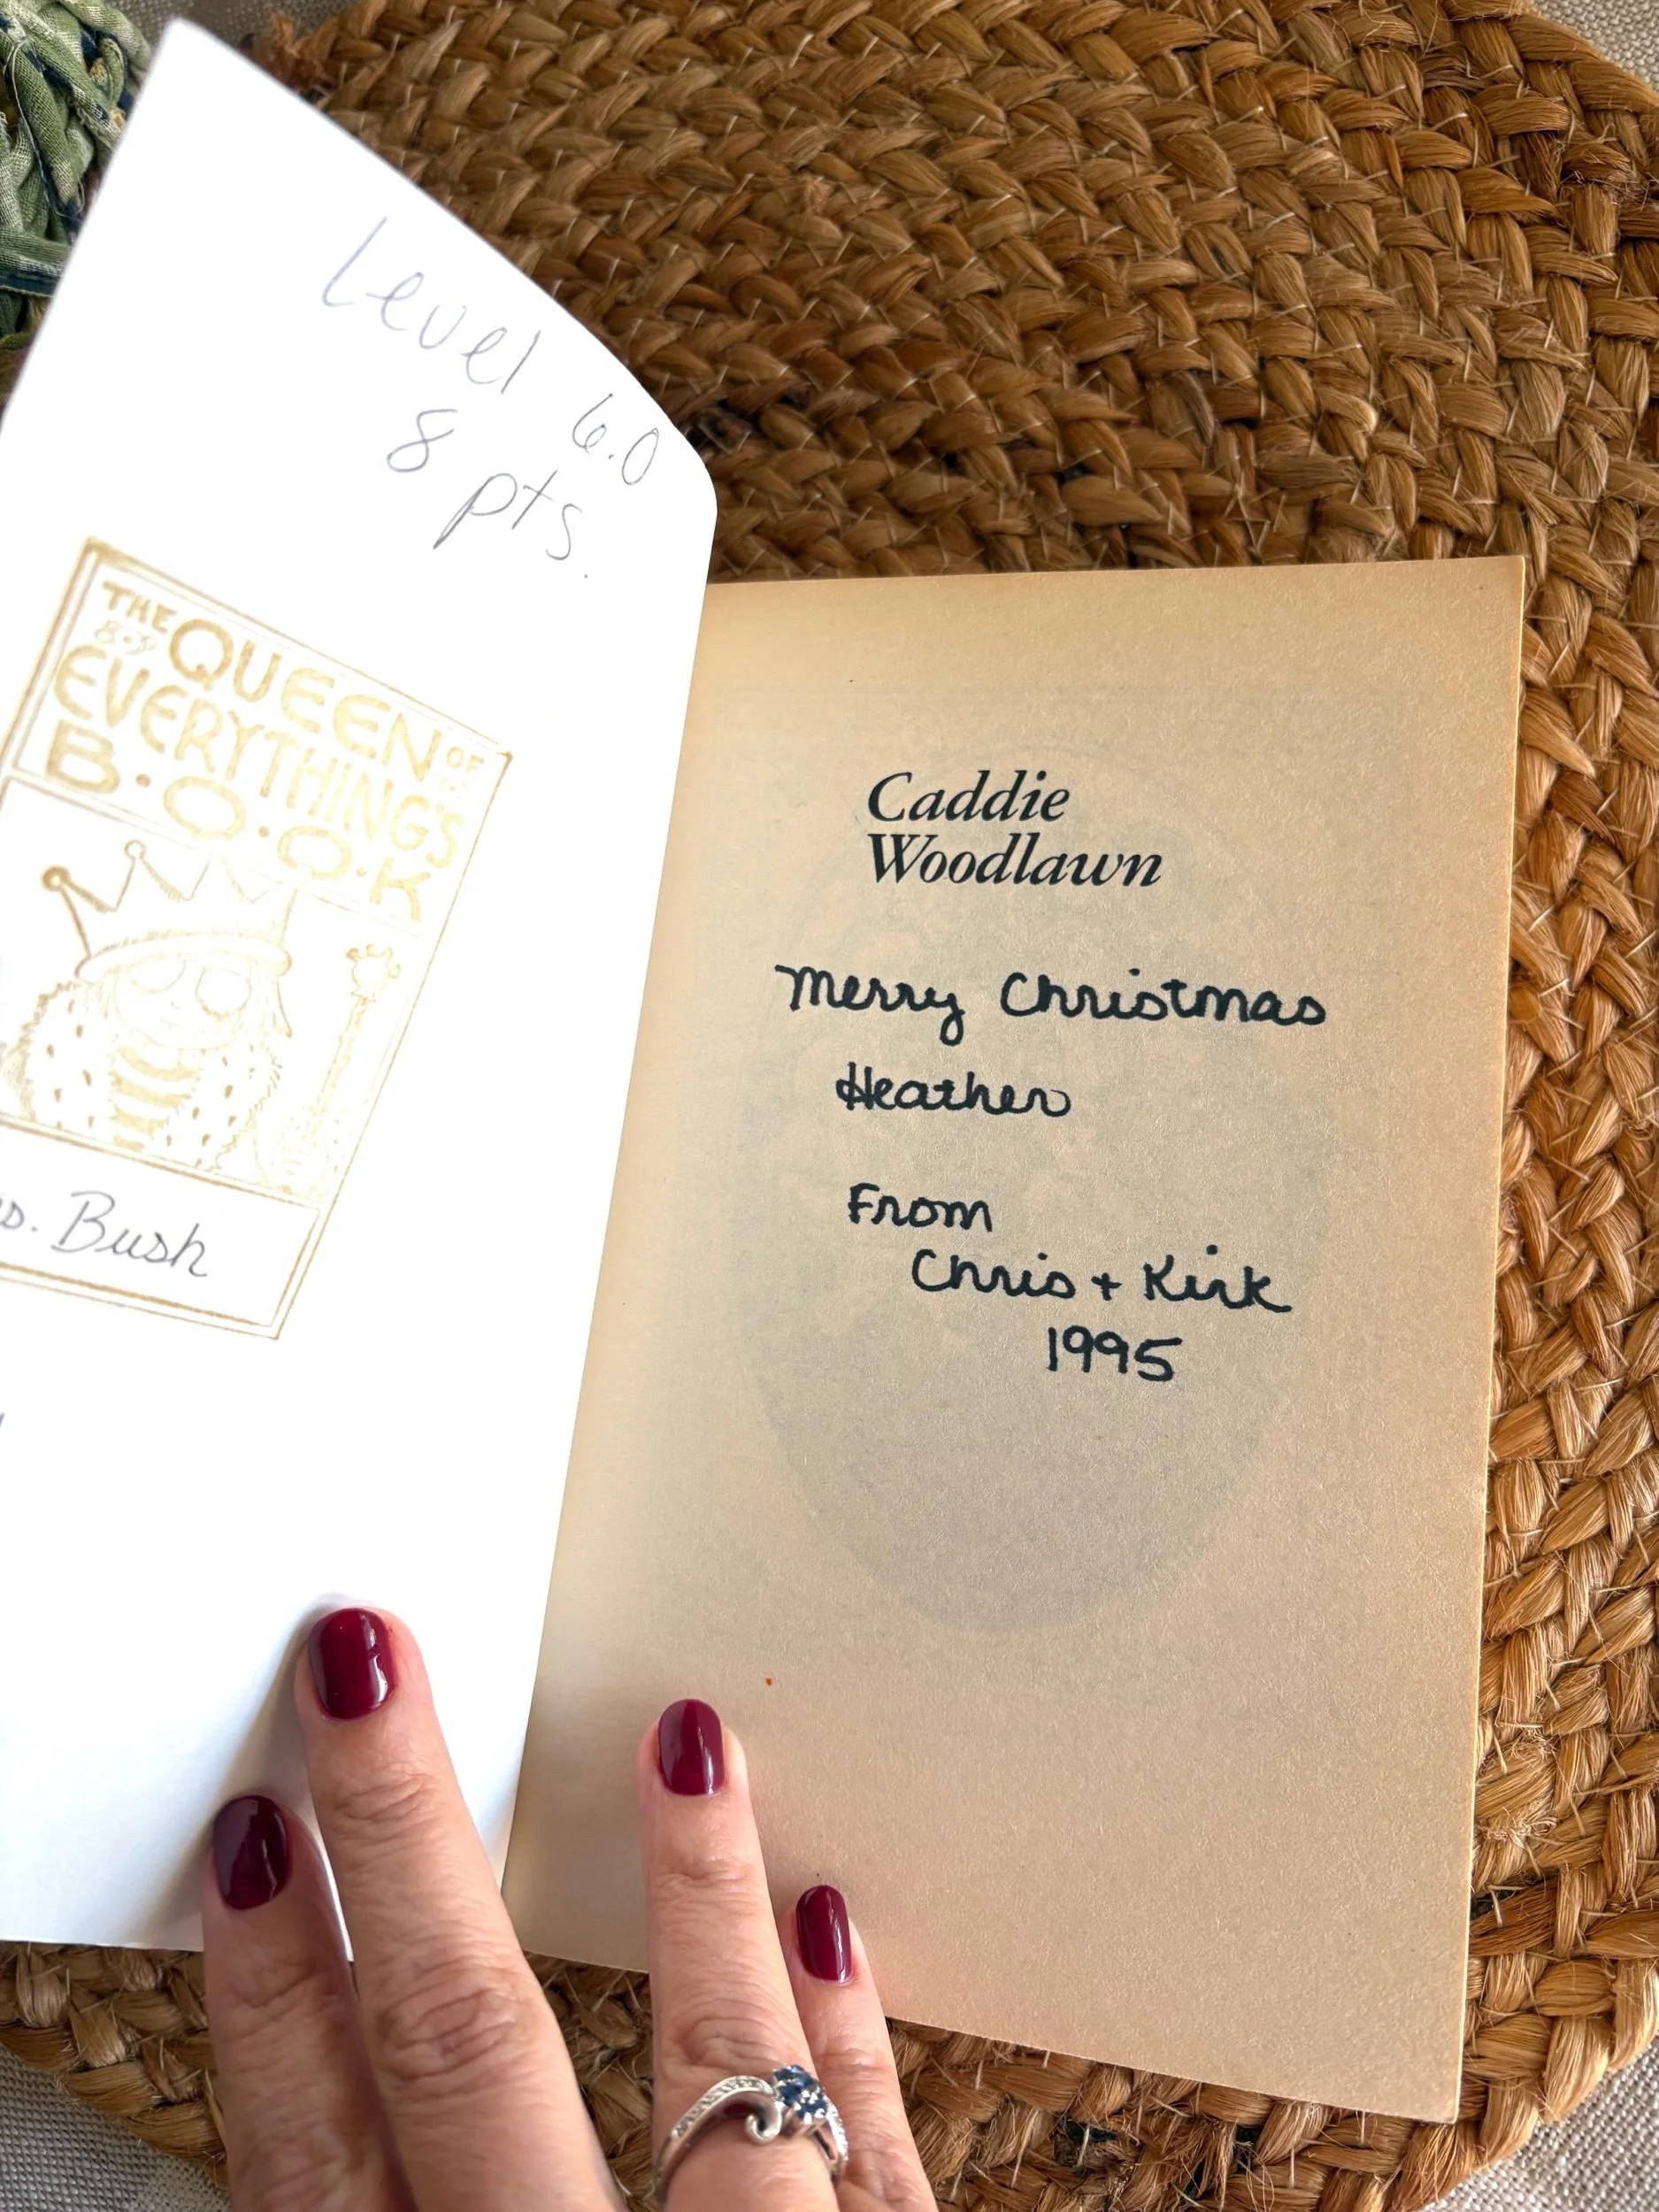 Level 6.0
8 pts.
THE
QUEEN OF
EVERYTHING'S
B.O.O.K
Bush
Caddie
Woodlawn
Merry Christmas
Heather
From
Chris + Kirk
1995